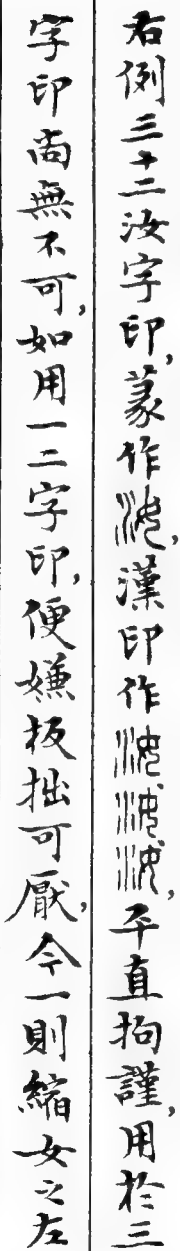 右例三十二汝字印，篆作汝，漢印作汝汝汝，平直拘謹，用於三
字印尚無不可，如用一二字印，便嫌板拙可厭，今一則縮女之左